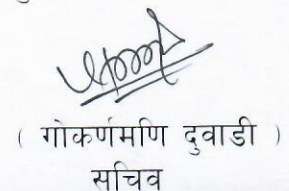 ( गोकर्णमणि दुवाडी )
सचिव